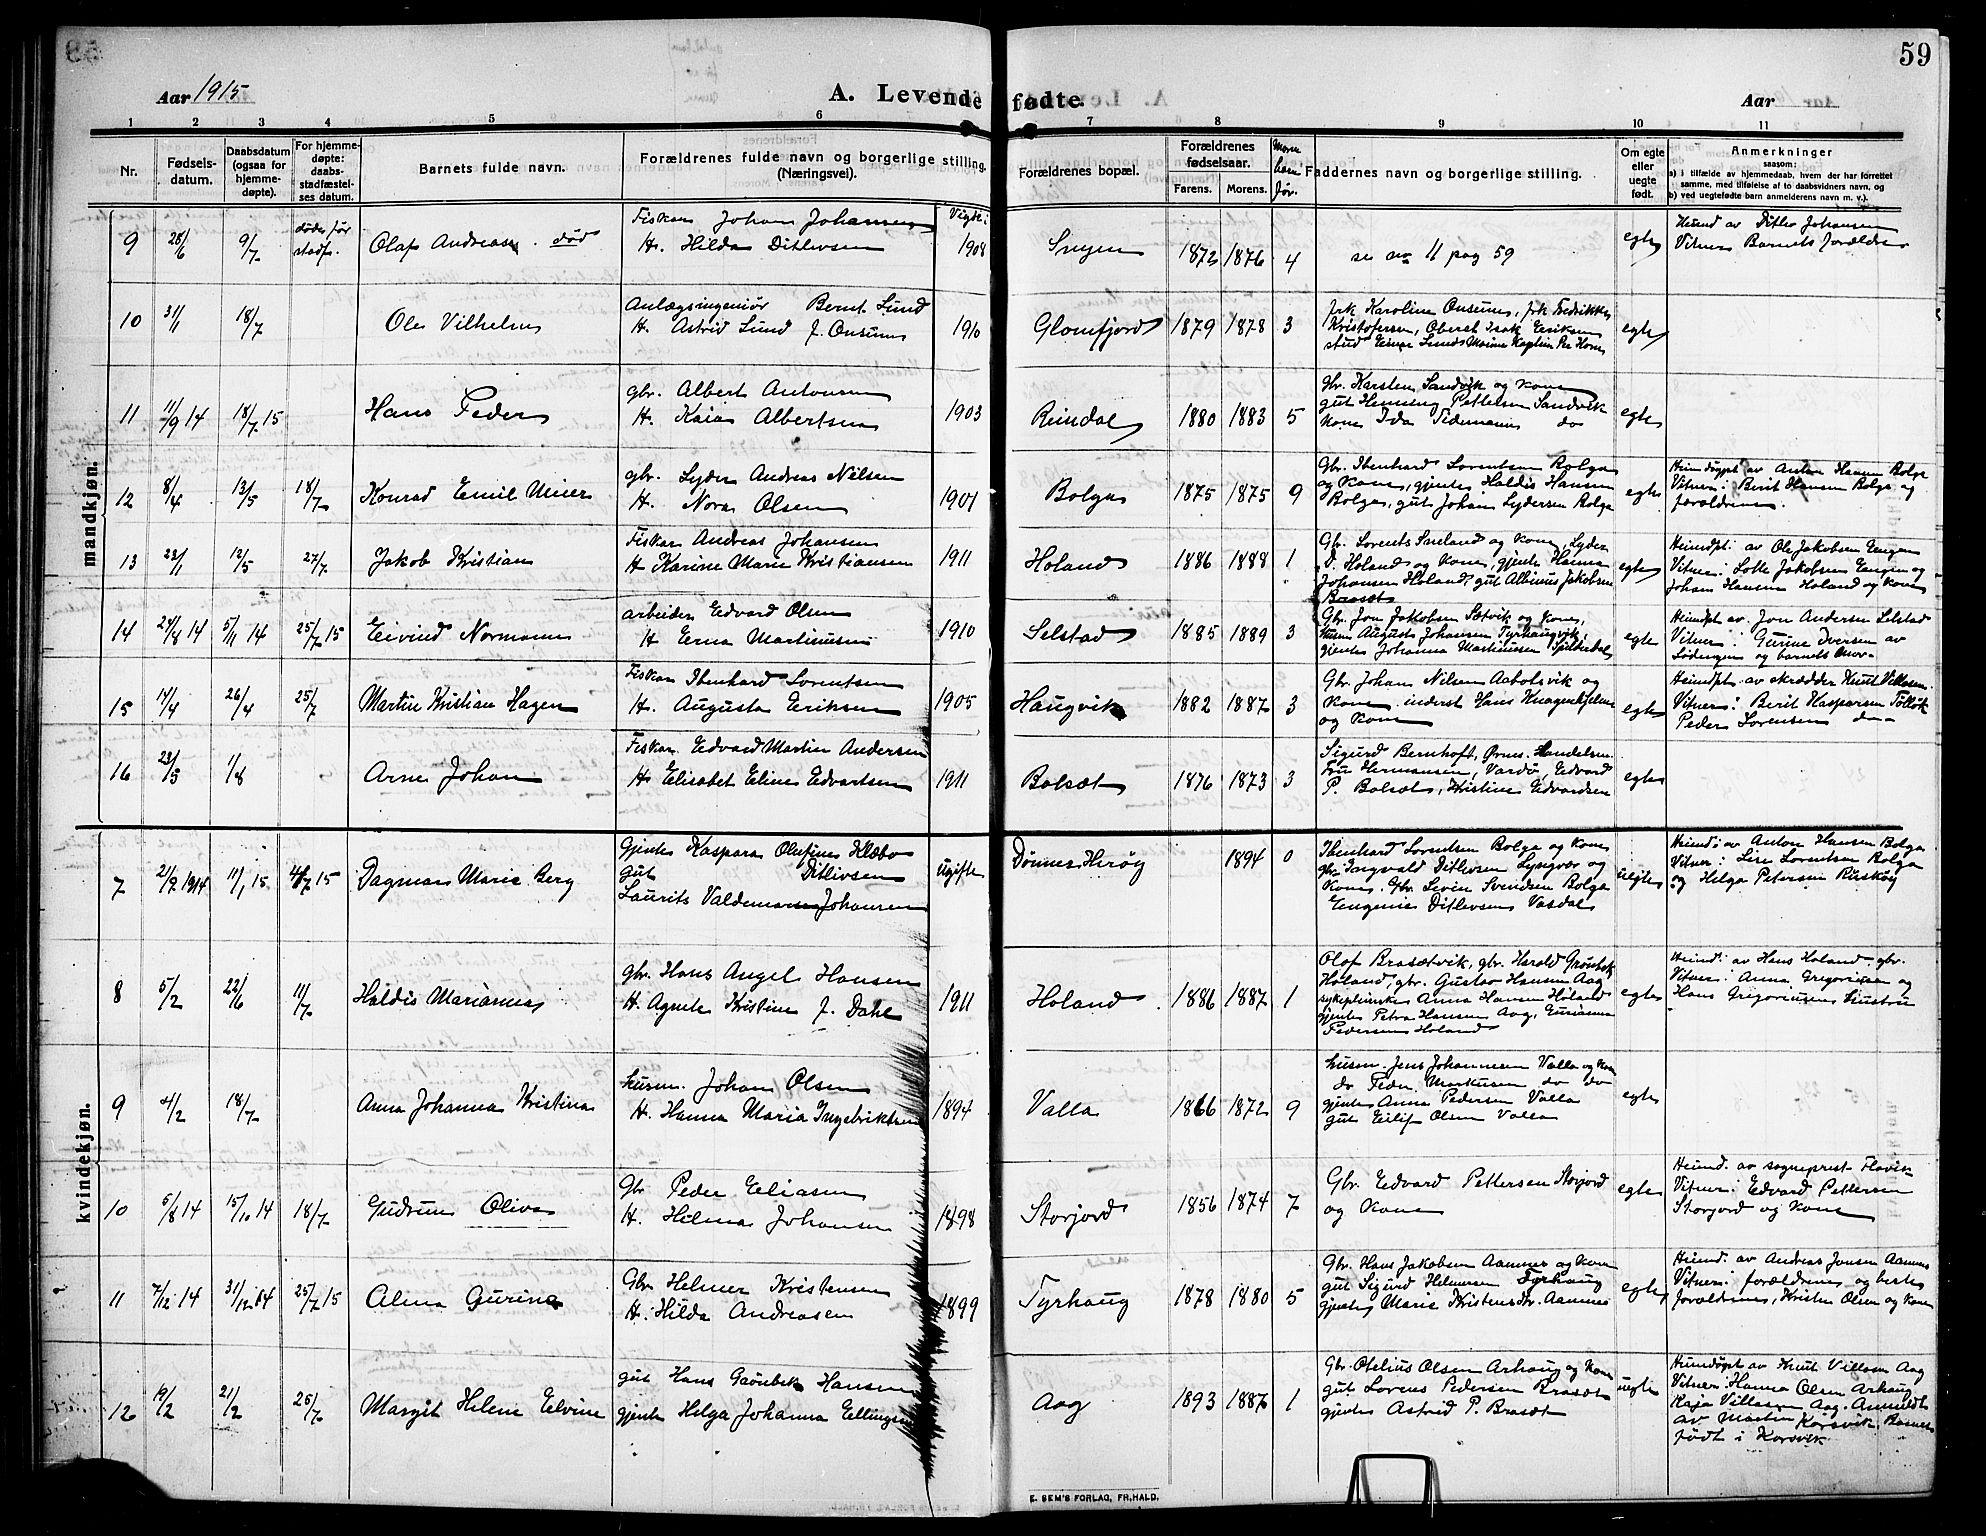 59
Aar 1915
A. Levende fødte.
Aar
1 2 3 4 5 6 7 8 9 10 11
Nr.
Fødsels-
datum.
Daabsdatum
(ogsaa for
hjemme-
døpte).
For hjemme-
døpte:
daabs-
stadfæstel-
ses datum.
Barnets fulde navn.
Forældrenes fulde navn og borgerlige stilling.
(Næringsvei).
Forældrenes bopæl.
Forældrenes
fødselsaar.
Farens. Morens.
Faddernes navn og borgerlige stilling.
Om egte
eller
uegte
født.
Anmerkninger
saasom:
a) i tilfælde av hjemmedaab, hvem der har forrettet
samme, med tilføielse af to daabsvidners navn, og
b) ved uegtefødte barn anmelderens navn m. v.).
mandkjøn.
9 28/6 9/7 døde før
stadf.
Olaf Andreas død
Fisker Johan Johansen
H. Hilda Ditlevsen
Vigde i
1908
1872 1876 4
se nr 11 pag 59
egte
Hemd av Ditlev Johansen
Vitner Barnets forældre
10 31/1 18/7
Ole Vilhelm
Anlægsingeniør Bernt Lund
H. Astrid Lund f. Onsum
1910
Glomfjord
1879 1878 3
frk Karoline Onsum, frk Fredrikke
Kristofersen, Oberst Isak Eriksen
egte
11 11/9 14 18/7 15
Hans Peder
gbr. Albert Antonsen
H. Kaia Albertsen
1903
Reindal
1880 1883 5
Gbr. Karsten Sandvik og Kone
gut Henning Pettersen Sandvik
Kone Ida Tidemann do
egte
12 8/4 13/5 18/7
Konrad Emil Meier
gbr. Lyder Andreas Nilsen
H. Nora Olsen
1901
Bolga
1875 1875 9
Gbr. Ibenhard Lorentsen Bolga
og Kone, gjente Haldis Hansen
Bolga, gut Johan Lydersen Bolga
egte
Hjemdøpt av Anton Hansen Bolga
Vitner: Berit Hansen Bolga og
forældrene.
13 23/1 12/5 27/7
Jakob Kristian
Fisker Andreas Johansen
H Karine Marie Kristiansen
1911
Holand
1886 1888 1
D. Holand og Kone, gjente Hanna
Johansen Holand, gut Albinus Jakobsen
Brasæt
egte
Heimdpt: av Ole Jakobsen Engen
Vitner: Lotte Jakobsen Engen og
Johan Hansen Holand og Kone
14 24/8 14 5/11 14 25/7 15
Eivind Normann
arbeider Edvard Olsen
H Erna Martinusen
1910
Selstad
1885 1889 3
Gbr. Jon Jakobsen Sætvik og Kone,
husm August Johansen Tyrhaugvik,
gjente Johanna Martinusen Spilderdal
egte
Heimdpt av Jon Andersen Selstad
Vitner: Gurine Iversen av
Lødengen og barnets mor
15 14/4 26/4 25/7
Martin Kristian Hagen
Fisker Ibenhard Lorentsen
H. Augusta Eriksen
1905
Haugvik
1882 1887 3
Gbr. Johan Nilsen Aabotsvik og
Kone. inderst Hans Knagenhjelm
og Kone
egte
Heimdpt. av skrædder Knut Villasen
Vitner: Berit Kaspersen
Peder Sørensen do
16 23/5 1/8
Arne Johan
Fisker Edvard Martin Andersen
H. Elisabet Eline Edvartsen
1911
Bolsæt
1876 1873 3
Sigurd Bernhoft, Ørnes. Handelsm.
Fru Hermansen, Vardø, Edvard
P. Bolsæt, Kristine Edvardsen
egte
kvindekjøn.
7 21/9 1914 11/1 15 4/7 15
Dagmar Marie Berg
Gjente Kaspara Olufine Klæbo
gut Ditlevsen
Laurits Valdemar Johansen
Ugifte
Dønnes Herøy
1894 0
Ibenhard Lorentsen Bolga og Kone
gbr Ingvald Ditlevsen Lyngvær og
Kone. Gbr Levin Svendsen Bolga
Eugenie Ditlevsen Vasdal
uegte
Hemd: av Anton Hansen Bolga
Vitner: Lise Lorentsen Bolga
og Helga Petersen Ruskøy
8 5/2 22/6 11/7
Haldis Marianne
gbr. Hans Angel Hansen
H. Agnete Kristine f. Dahl
1911
Holand
1886 1887 1
Olaf Brasætvik, gbr. Harald Grønbek
Holand, gbr. Gustav Hansen Aag
sykepleierske Anna Hansen Holand
gjente Petra Hansen Aag,
Pedersen Holand
egte
Heimd: av Hans Holand gbr.
Vitner: Anna Gregoriusen og
Hans Gregoriusen
9 4/2 18/7
Anna Johanna Kristina
husm. Johan Olsen
H. Hanna Maria Ingebriktsen
1894
Valla
1866 1872 9
husm. Jens Johannesen Valla og Kone
do Peder Markusen do do
gjente Anna Pedersen Valla
gut Eilif Olsen Valla
egte
10 5/8 14 15/10 14 18/7
Gudrun Oliva
Gbr Peder Eliasen
H. Hilma Johansen
1898
Storjord
1856 1874 7
Gbr. Edvard Pettersen Storjord
og Kone
egte
Heimd. av sogneprest
Vitner: Edvard Pettersen
Storjord og Kone
11 7/12 14 31/12 14 25/7 15
Alma Gurine
Gbr Helmer Kristensen
H. Hilda Andreasen
1899
Tyrhaug
1878 1880 5
Gbr. Hans Jakobsen Aamnes og Kone
gut Sigurd Helmersen Tyrhaug
gjente Marie Kristensdtr. Aamnes
egte
Heimd: av Andreas Jonsen Aamnes
Vitner: forældrene og beste
forældrene, Kristen Olsen og Kone
12 19/2 21/2 25/7
Margit Helene Elvine
gut Hans Grønbek Hansen
gjente Helga Johanna Ellingsen
Aag
1893 1887 1
Gbr. Otelius Olsen Arhaug og Kone
gut Lorens Pedersen Brasæt
gjente Astrid P. Brasæt
uegte
Heimdøpt av Knut Villasen Aag
Vitner: Hanna Olsen Arhaug
Kaja Villasen Aag. Anmeldt
av Martin Korsvik, Barnet
født i Korsvik.
E. SEM'S FORLAG, FR.HALD.